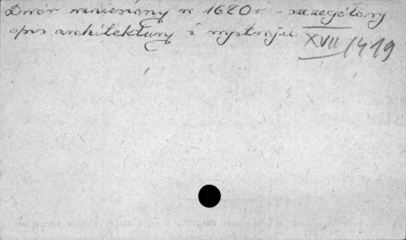 Dwór wzniesiony w 1620 r - szczegółowy
opis architektury i wystroju. XVII/419